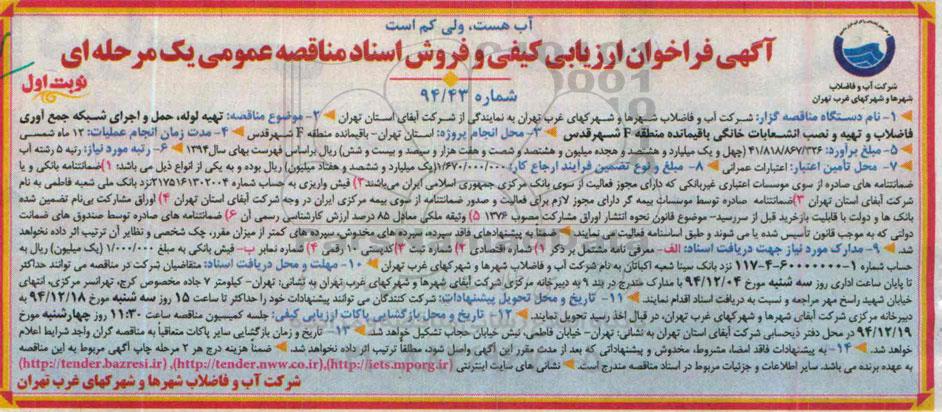 آب هست، ولی کم است
آگهی فراخوان ارزیابی کیفی و فروش اسناد مناقصه عمومی یک مرحله ای
شرکت آب و فاضلاب
شهرها و شهرکهای غرب تهران
نوبت اول
شماره ۹۴/۴۳
۱- نام دستگاه مناقصه گزار: شرکت آب و فاضلاب شهرها و شهرکهای غرب تهران به نمایندگی از شرکت آبفای استان تهران ۲- موضوع مناقصه: تهیه لوله، حمل و اجرای شبکه جمع آوری
فاضلاب و تهیه و نصب انشعابات خانگی باقیمانده منطقه F شهرقدس ۳- محل انجام پروژه: استان تهران- باقیمانده منطقه F شهرقدس ۴- مدت زمان انجام عملیات: ۱۲ ماه شمسی
۵- مبلغ برآورد: ۴۱/۸۱۸/۸۶۷/۳۲۶ (چهل و یک میلیارد و هشتصد و هجده میلیون و هشتصد و شصت و هفت هزار و سیصد و بیست و شش) ریال براساس فهرست بهای سال ۱۳۹۴ ۶- رتبه مورد نیاز: رتبه ۵ رشته آب
۷- محل تأمین اعتبار: اعتبارات عمرانی ۸- مبلغ و نوع تضمین فرآیند ارجاع کار: ۱/۶۷۰/۰۰۰/۰۰۰ (یک میلیارد و ششصد و هفتاد میلیون) ریال بوده و به یکی از انواع ذیل می باشد: ۱) ضمانتنامه بانکی و یا
ضمانتنامه های صادره از سوی موسسات اعتباری غیربانکی که دارای مجوز فعالیت از سوی بانک مرکزی جمهوری اسلامی ایران می‌باشند ۲) فیش واریزی به حساب شماره ۲۱۷۵۱۶۱۳۰۲۰۰۴ نزد بانک ملی شعبه فاطمی به نام
شرکت آبفای استان تهران ۳) ضمانتنامه صادره توسط موسسات بیمه گر دارای مجوز لازم برای فعالیت و صدور ضمانتنامه از سوی بیمه مرکزی ایران در وجه شرکت آبفای استان تهران ۴) اوراق مشارکت بی‌نام تضمین شده
بانک ها و دولت با قابلیت بازخرید قبل از سررسید- موضوع قانون نحوه انتشار اوراق مشارکت مصوب ۱۳۷۶ ۵) وثیقه ملکی معادل ۸۵ درصد ارزش کارشناسی رسمی آن ۶) ضمانتنامه های صادره توسط صندوق های ضمانت
دولتی که به موجب قانون تأسیس شده یا می شوند و طبق اساسنامه فعالیت می نمایند. ضمناً به پیشنهادهای فاقد سپرده، سپرده های مخدوش، سپرده‌های کمتر از میزان مقرر، چک شخصی و نظایر آن ترتیب اثر داده نخواهد
شد. ۹- مدارک مورد نیاز جهت دریافت اسناد: الف- معرفی نامه مشتمل بر ذکر ۱) شماره اقتصادی ۲) شماره ثبت ۳) کدپستی ۱۰ رقمی ۴) شماره نمابر ب- فیش بانکی به مبلغ ۱/۰۰۰/۰۰۰ (یک میلیون) ریال به
حساب شماره ۱-۶۰۰۰۰۰۰۰-۴-۱۱۷ نزد بانک سینا شعبه اکباتان به نام شرکت آب و فاضلاب شهرها و شهرکهای غرب تهران ۱۰- مهلت و محل دریافت اسناد: متقاضیان شرکت در مناقصه می توانند حداکثر
تا پایان ساعت اداری روز سه شنبه مورخ ۹۴/۱۲/۰۴ با مدارک مندرج در بند ۹ به دبیرخانه مرکزی شرکت آبفای شهرها و شهرکهای غرب تهران به نشانی: تهران- کیلومتر ۷ جاده مخصوص کرج، تهرانسر مرکزی، انتهای
خیابان شهید راسخ مهر مراجعه و نسبت به دریافت اسناد اقدام نمایند. ۱۱- تاریخ و محل تحویل پیشنهادات: شرکت کنندگان می توانند پیشنهادات خود را حداکثر تا ساعت ۱۵ روز سه شنبه مورخ ۹۴/۱۲/۱۸ به
دبیرخانه مرکزی شرکت آبفای شهرها و شهرکهای غرب تهران، در قبال اخذ رسید تحویل نمایند. ۱۲- تاریخ و محل بازگشایی پاکات ارزیابی کیفی: جلسه کمیسیون مناقصه ساعت ۱۱:۳۰ روز چهارشنبه مورخ
۹۴/۱۲/۱۹ در محل دفتر ذیحسابی شرکت آبفای استان تهران به نشانی: تهران- خیابان فاطمی، نبش خیابان حجاب تشکیل خواهد شد. ۱۳- تاریخ و زمان بازگشایی سایر پاکات متعاقباً به مناقصه گران واجد شرایط اعلام
خواهد شد. ۱۴- به پیشنهادات فاقد امضاء، مشروط، مخدوش و پیشنهاداتی که بعد از مدت مقرر این آگهی واصل شود، مطلقاً ترتیب اثر داده نخواهد شد. ضمناً هزینه درج هر ۲ مرحله چاپ آگهی مربوط به این مناقصه
به عهده برنده می باشد. سایر اطلاعات و جزئیات مربوط در اسناد مناقصه مندرج است. نشانی های سایت اینترنتی (http://iets.mporg.ir)، (http://tender.nww.co.ir)، (http://tender.bazresi.ir)
شرکت آب و فاضلاب شهرها و شهرکهای غرب تهران